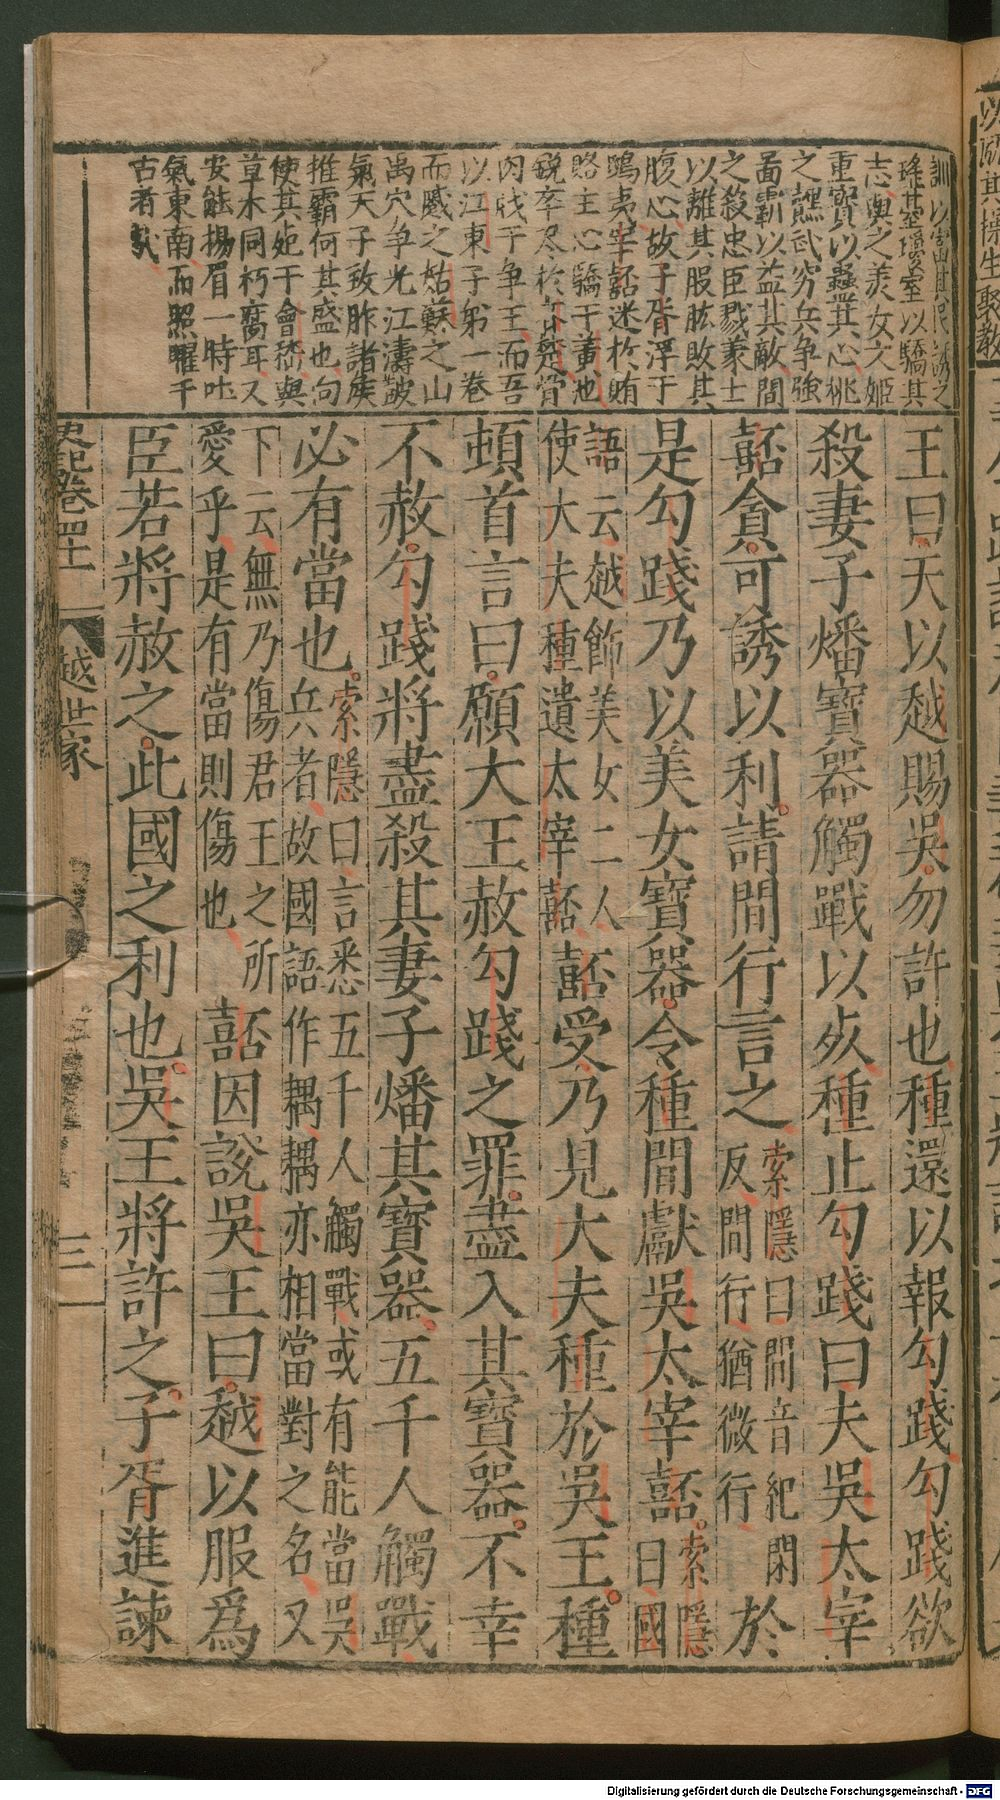 訓以
瑤基瓊室以驕其
志與之美女文姬
重寶以蠱其心桃
之黷武窮兵爭強
啚霸以益其敵間
之殺忠臣戮豪士
以離其股肱敗其
腹心故子胥浮于
鴟夷宰嚭迷於賄
賂主心驕于黃池
銳卒尽於
內戕于爭王而吾
以江東子弟一卷
而颺之姑蘇之山
禹穴爭光江濤皷
氣天子致胙諸侯
推霸何其盛也句
使其死于會嵇與
草木同朽腐耳又
安能揚眉一時吐
氣東南而照曜千
古者哉
王曰天以越賜吳勿許也種還以報勾踐勾踐欲
殺妻子燔寶器觸戰以死種止勾踐曰夫吳太宰
嚭貪可誘以利請間行言之索隱曰間音紀閑反間行猶微行於
是勾踐乃以美女寶器令種間獻吳太宰嚭索隱曰國
語云越飾美女二人使大夫種遺太宰嚭嚭受乃見大夫種於吳王種
頓首言曰願大王赦勾踐之罪盡入其寶器不幸
不赦勾踐將盡殺其妻子燔其寶器五千人觸戰
必有當也索隱曰言悉五千人觸戰或有能當吳兵者故國語作耦耦亦相當對之名又
下云無乃傷君王之所愛乎是有當則傷也嚭因說吳王曰越以服爲
臣若將赦之此國之利也吳王將許之子胥進諫
史記卷四十一
越世家
三
Digitalisierung gefördert durch die Deutsche Forschungsgemeinschaft - DFG